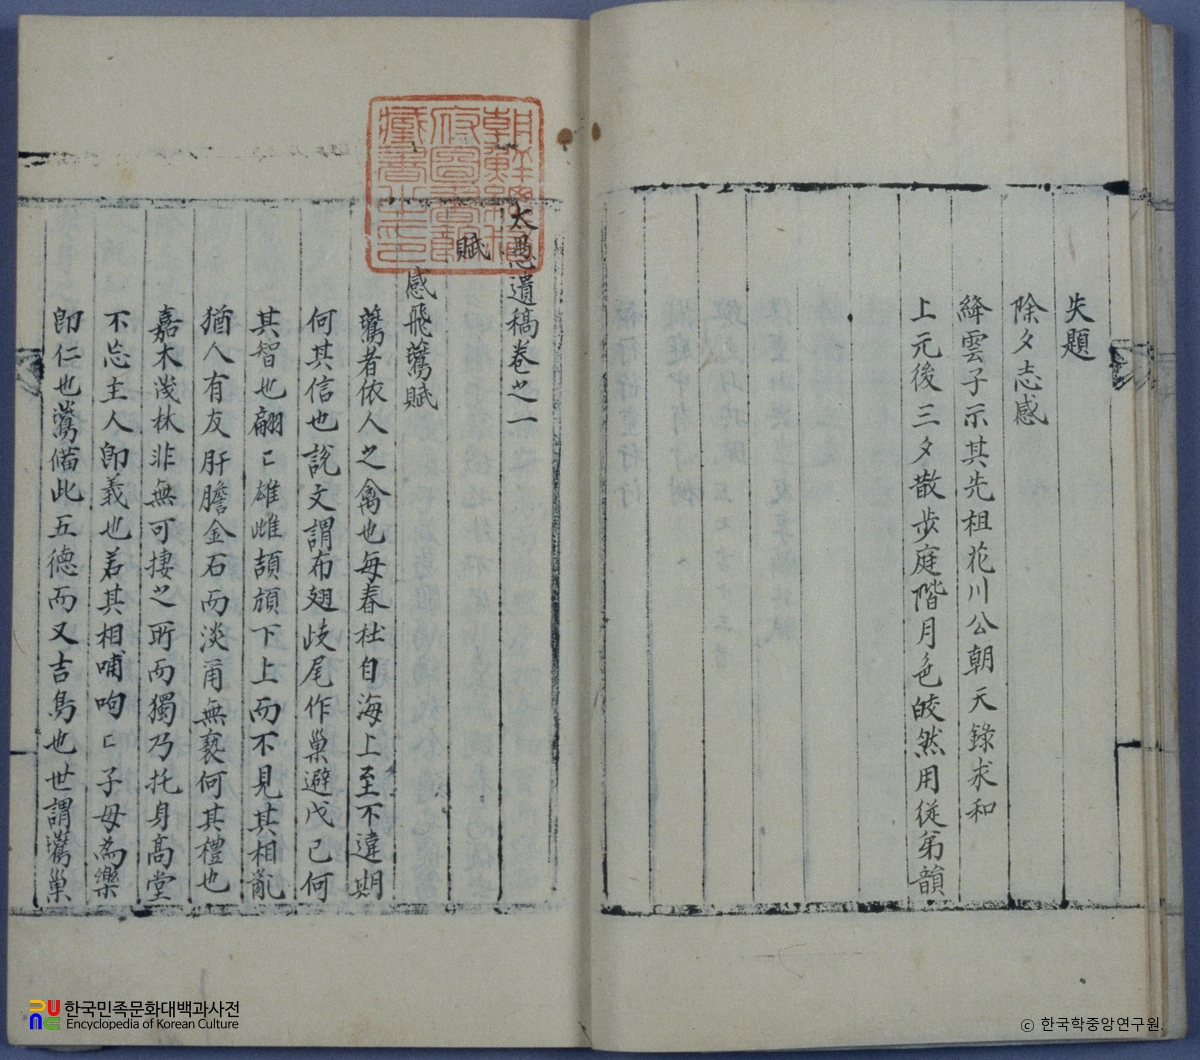 失題
除夕志感
絳雲子示其先祖花川公朝天錄求和
上元後三夕散步庭階月色皎然用從弟韻
太愚遺稿卷之一
賦
感飛鷰賦
鷰者依人之禽也每春杜自海上至不違期
何其信也說文謂布翅歧尾作巢避戊己何
其智也翩〻雄雌頡頏下上而不見其相亂
猶人有友肝膽金石而淡甭無褻何其禮也
嘉木茂林非無可捿之所而獨乃托身高堂
不忘主人卽義也若其相哺呴〻子母為樂
卽仁也鷰備此五德而又吉鳥也世謂鷰巢
朝鮮總督府圖書館藏書之印
한국민족문화대백과사전
Encyclopedia of Korean Culture
ⓒ 한국학중앙연구원.